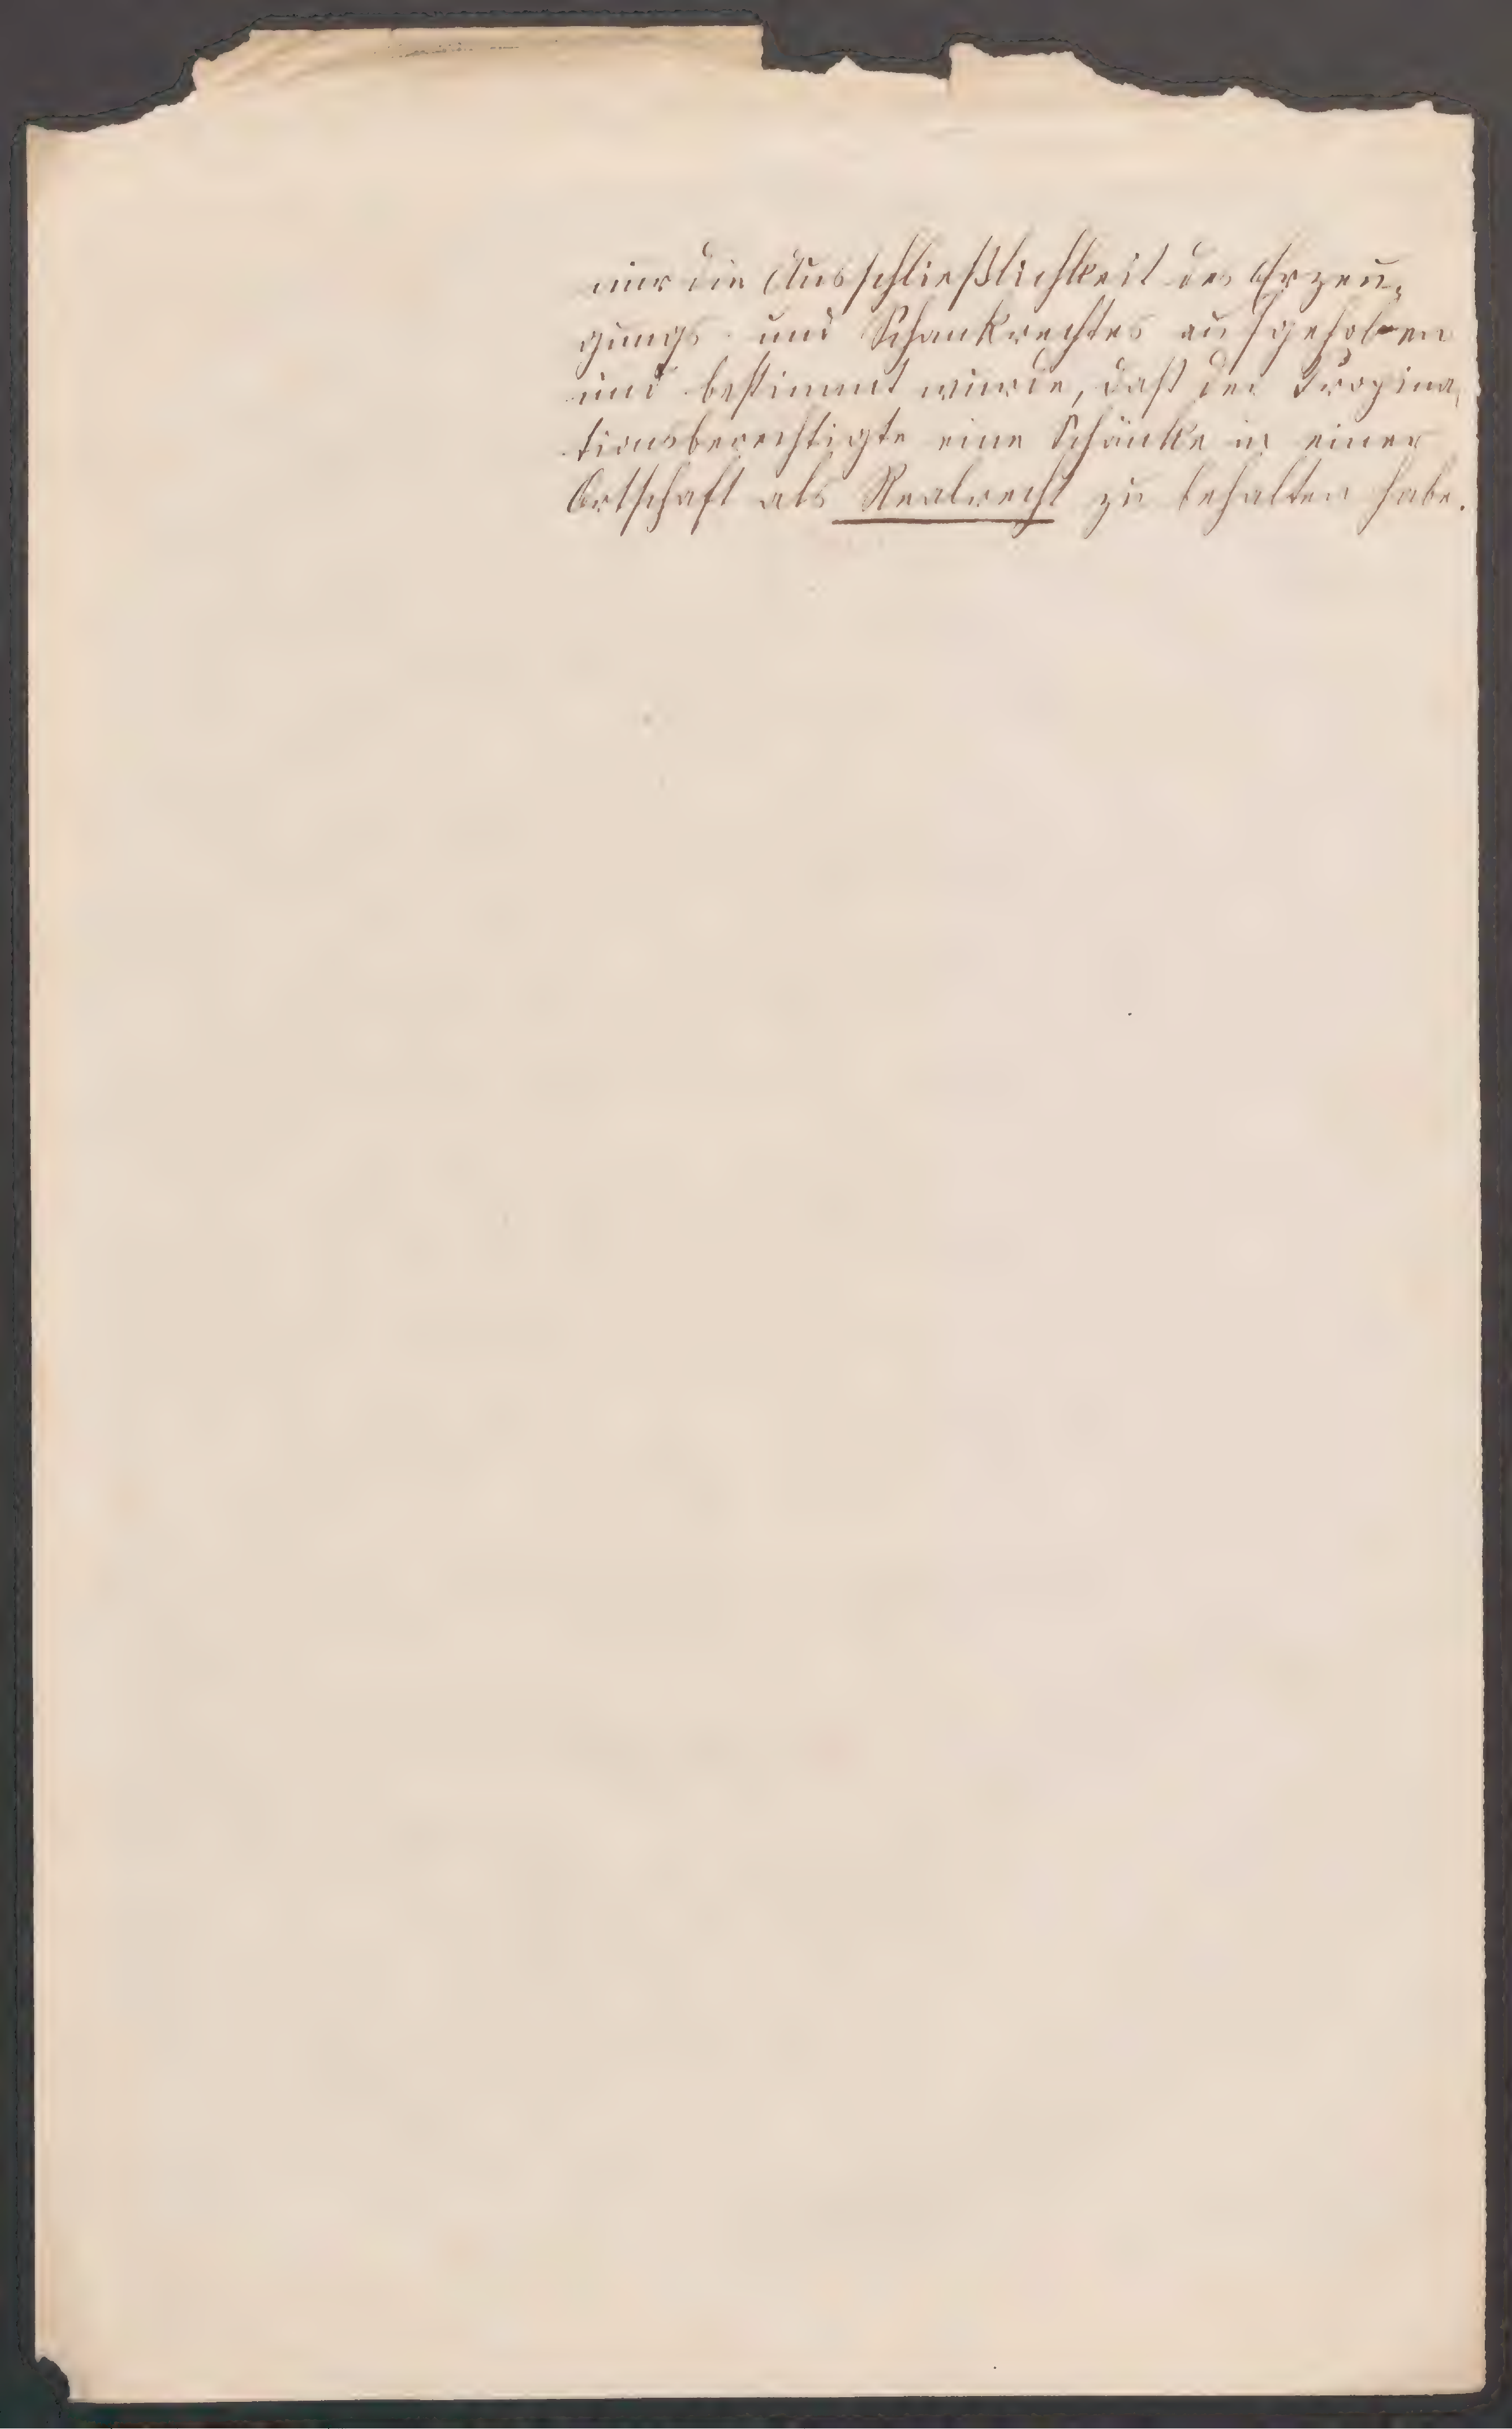 nur die Ausschließlichkeit des Erzeu-
gungs- und Schankrechtes aufgehoben
und bestimmt wurde, daß der Propina-
tionsberechtigte eine Schänke in einer
Ortschaft als Realrecht zu behalten habe.